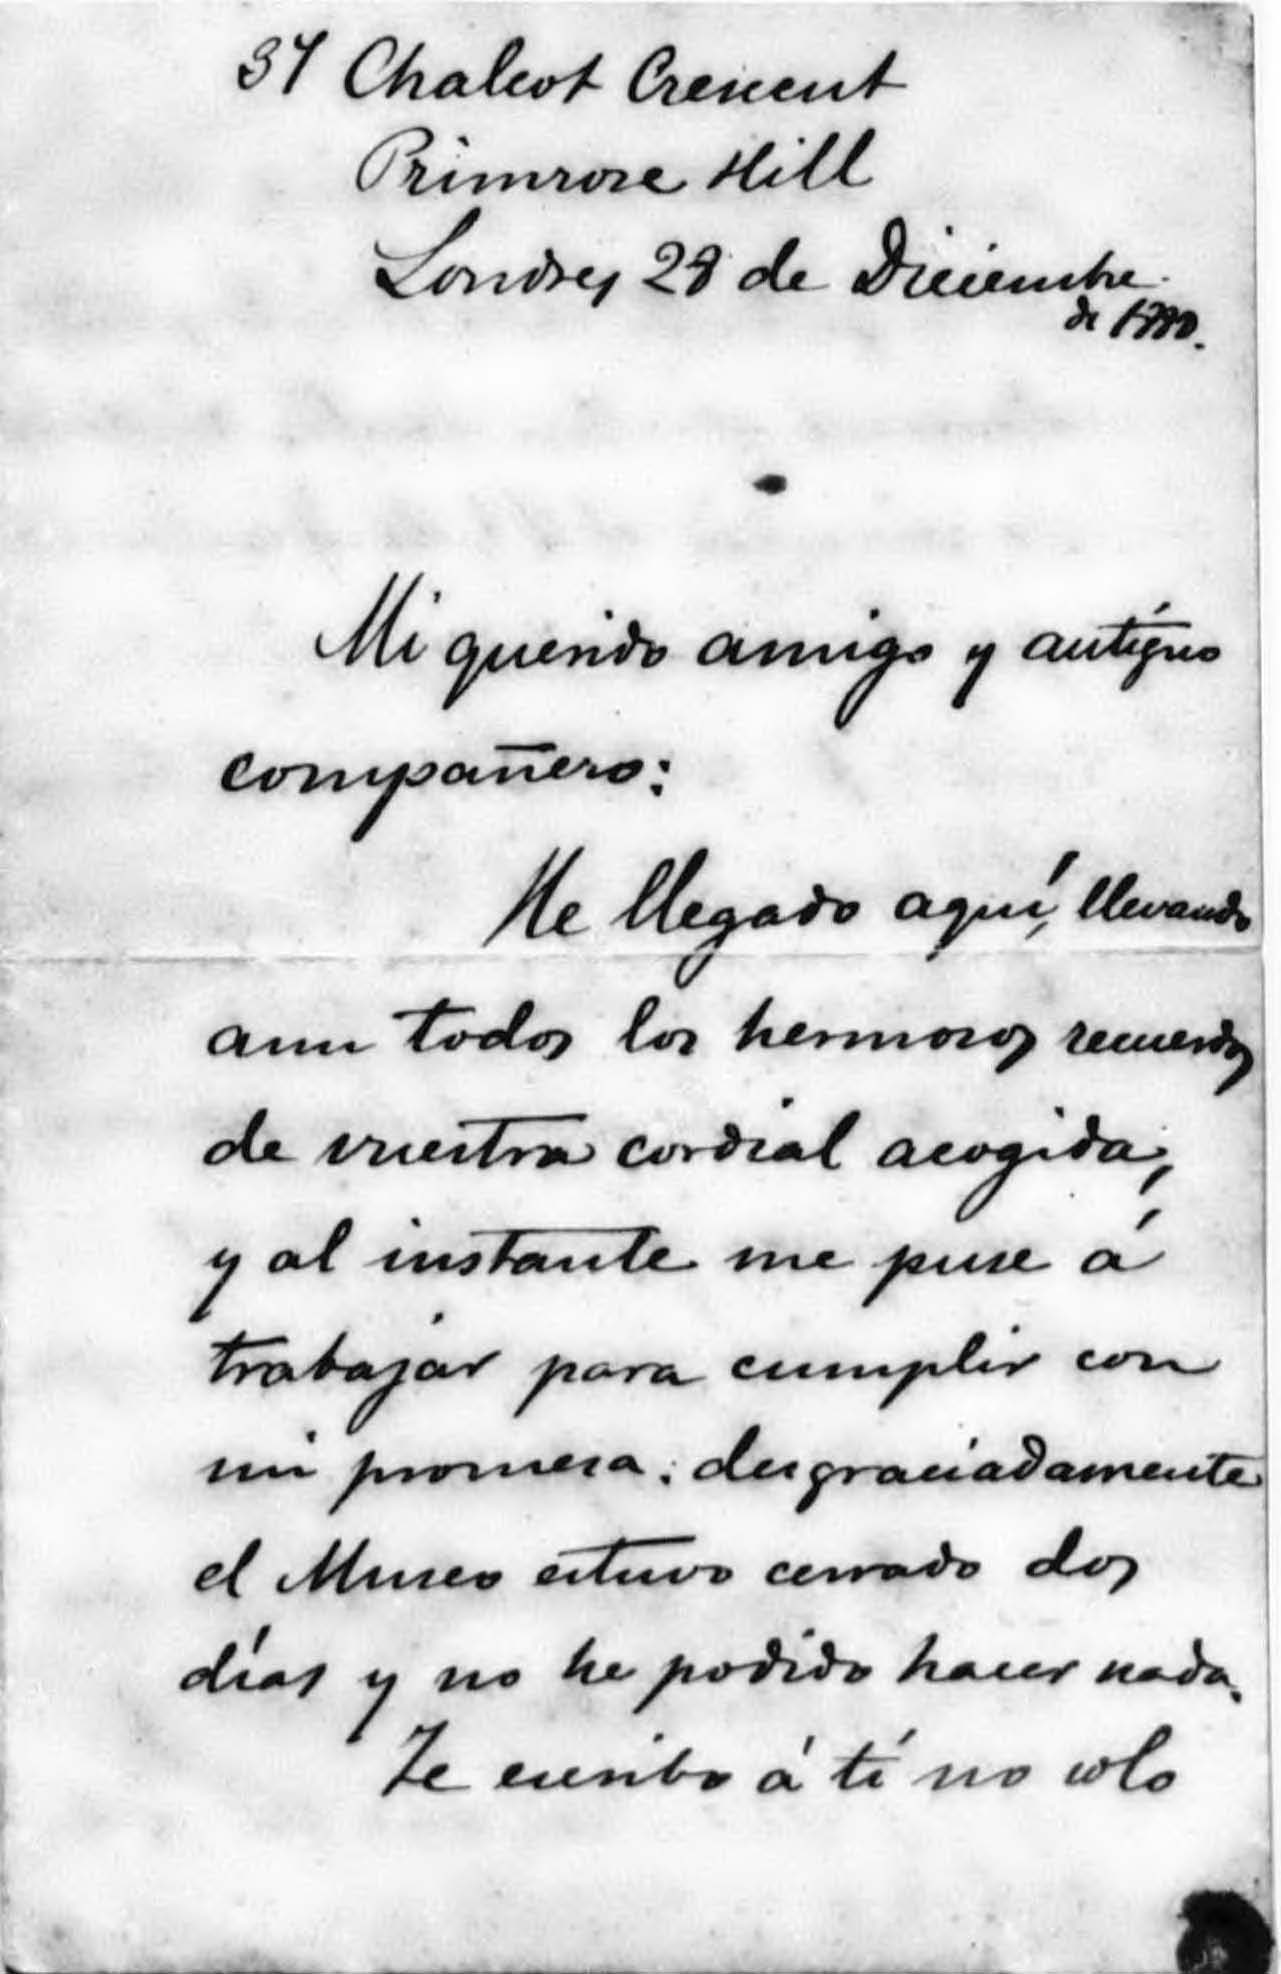 37 Chalcot Crescent
Primrose Hill
Londres 28 de Diciembre
de 1880.
Mi querido amigo y antíguo
compañero:
He llegado aquí, llevando
aun todos los hermosos recuerdos
de vuestra cordial acogida,
y al instante me puse á
trabajar para cumplir con
mi promesa: desgraciadamente
el Museo estuvo cerrado dos
días y no he podido hacer nada.
Te escribo á tí no solo